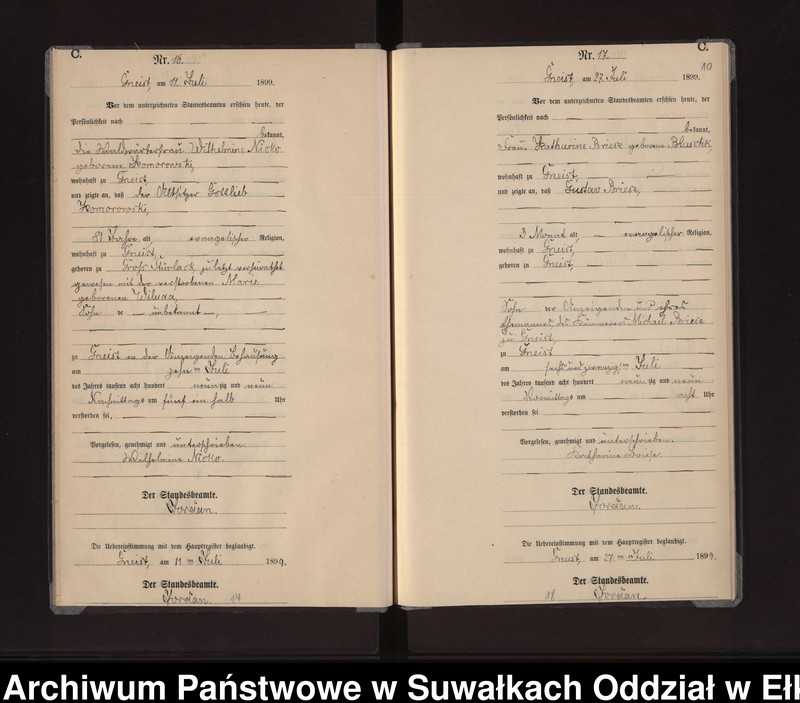 C.
Nr. 16.
Gneist, am 11. Juli 1899.
Vor dem unterzeichneten Standesbeamten erschien heute, der
Persönlichkeit nach
bekannt,
die Waldwärterfrau Wilhelmine Nicko
geborene Komorowski,
wohnhaft zu Gneist,
und zeigte an, daß der Altsitzer Gottlieb
Komorowski,
81 Jahre alt, evangelischer Religion,
wohnhaft zu Gneist,
geboren zu Groß Stürlack, zuletzt verheirathet
gewesen mit der verstorbenen Marie
geborenen Wiluda,
Sohn de unbekannt,
zu Gneist in der Anzeigenden Behausung
am zehn ten Juli
des Jahres tausend acht hundert neunzig und neun
Nachmittags um fünf ein halb Uhr
verstorben sei.
Vorgelesen, genehmigt und unterschrieben.
Wilhelmine Nicko.
Der Standesbeamte.
Die Uebereinstimmung mit dem Hauptregister beglaubigt.
Gneist, am 11 ten Juli 1899.
Der Standesbeamte.
14
C.
10
Nr. 17.
Gneist, am 27. Juli 1899.
Vor dem unterzeichneten Standesbeamten erschien heute, der
Persönlichkeit nach
bekannt,
Frau Katharine Briese geborene
wohnhaft zu Gneist,
und zeigte an, daß Gustav Briese,
3 Monat alt, evangelischer Religion,
wohnhaft zu Gneist,
geboren zu Gneist,
Sohn der Anzeigenden und ihres
Ehemannes, des Michael Briese
zu Gneist,
zu Gneist
am sechsundzwanzig ten Juli
des Jahres tausend acht hundert neunzig und neun
Vormittags um acht Uhr
verstorben sei.
Vorgelesen, genehmigt und unterschrieben.
Katharine Briese
Der Standesbeamte.
Die Uebereinstimmung mit dem Hauptregister beglaubigt.
Gneist, am 27 ten Juli 1899.
Der Standesbeamte.
18
Archiwum Państwowe w Suwałkach Oddział w Ełk